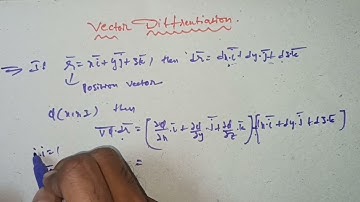 Vector Diffrentiation.
⇒ If r̄ = xī + yj̄ + zk̄, then dr̄ = dx.ī + dy.j̄ + dz.k̄
↓
Position vector
φ(x,y,z) then
∇φ.dr̄ = (∂φ/∂x.ī + ∂φ/∂y.j̄ + ∂φ/∂z.k̄).(dx.ī + dy.j̄ + dz.k̄)
i.i = 1
=